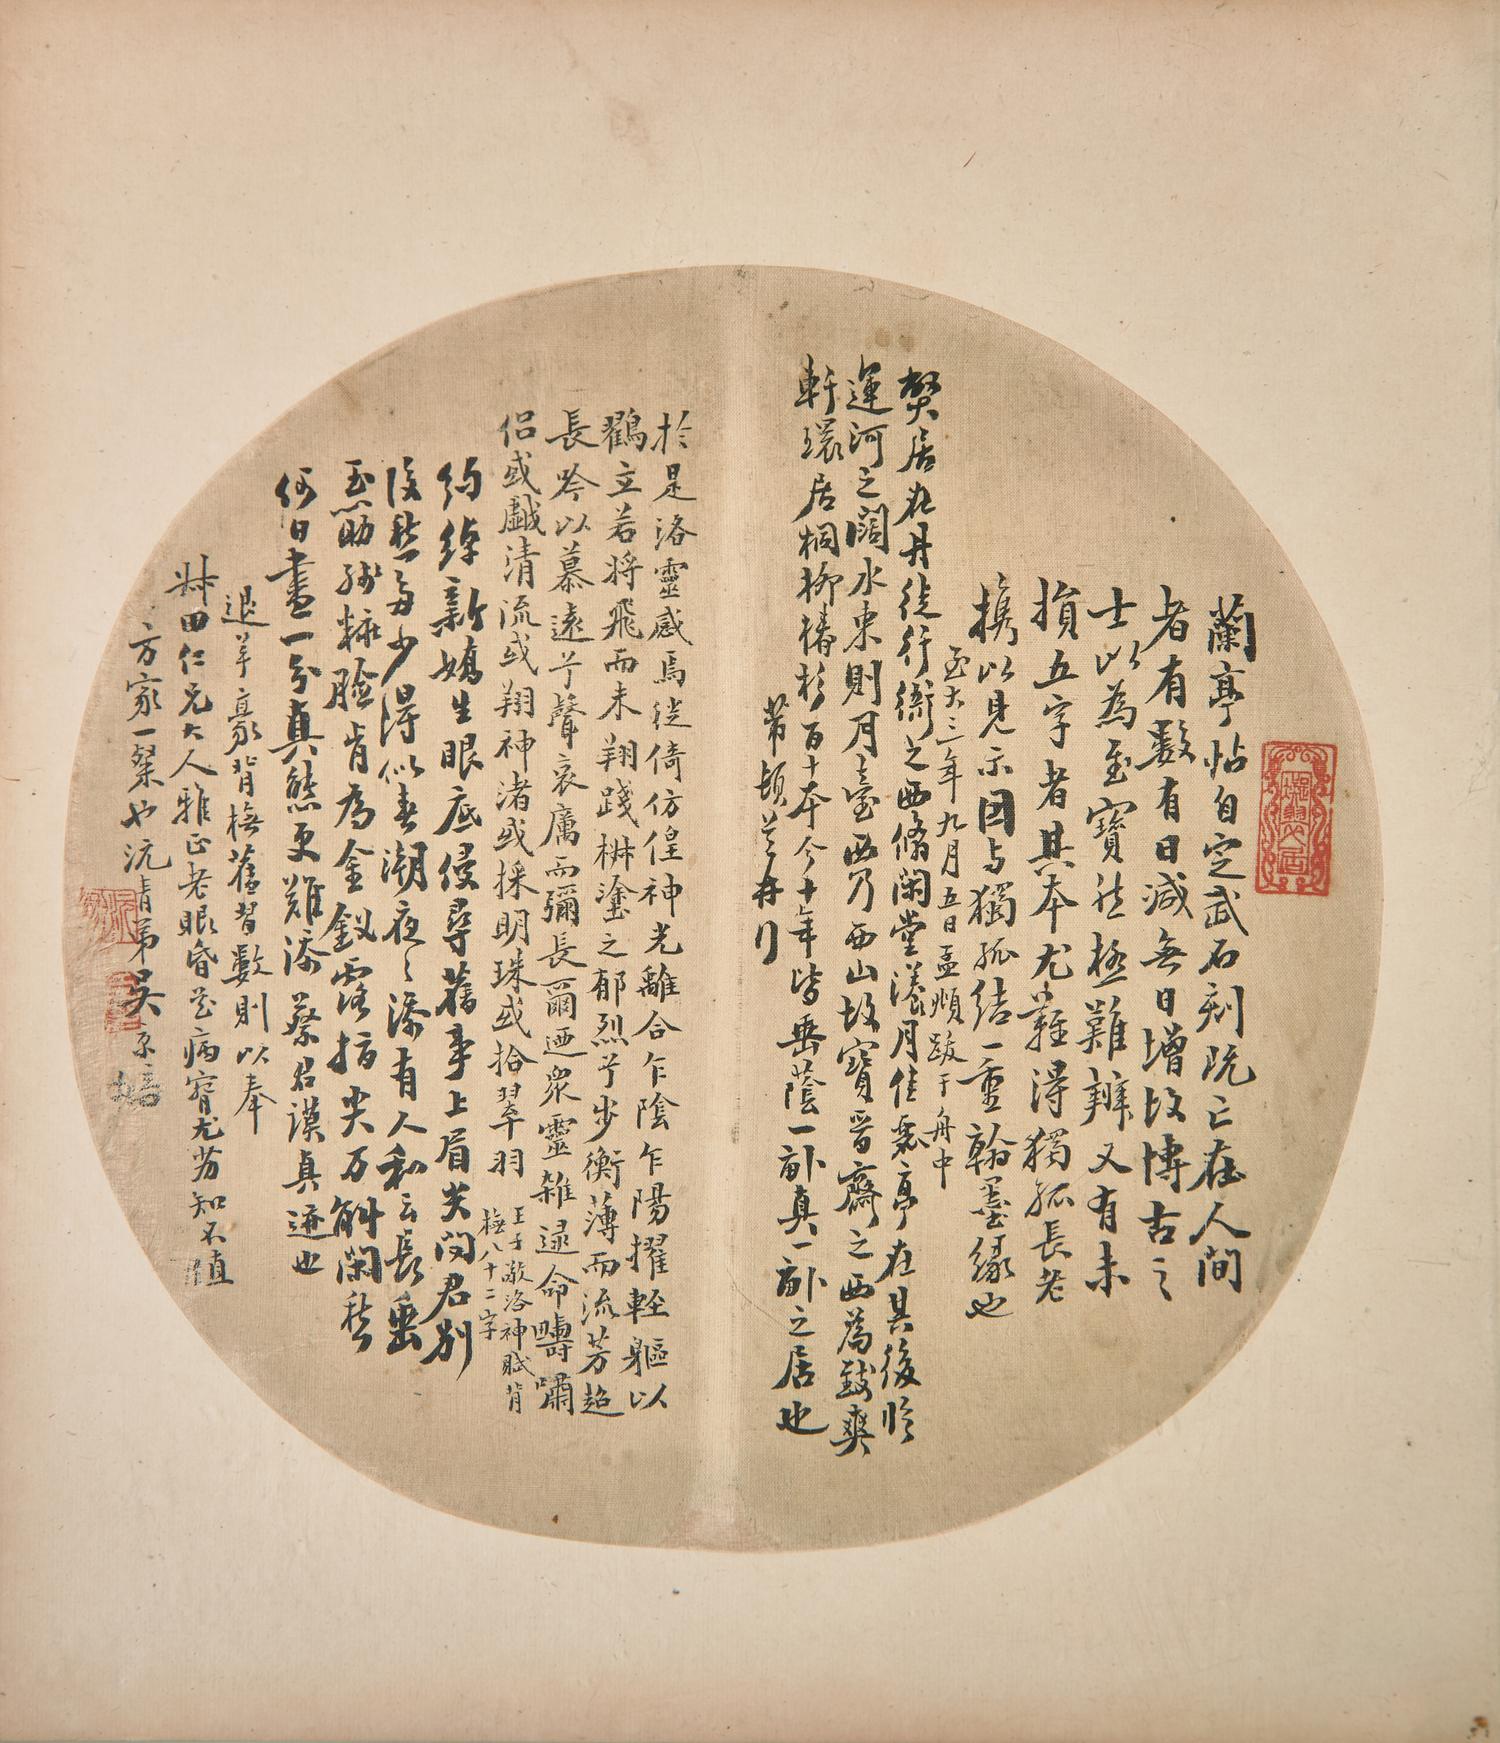 蘭亭帖自定武石刻既亡在人間
者有數有日減無日增故博古之
士以為至寶然極難辨又有未
損五字者其本尤難得獨孤長老
攜以見示因與獨孤結一重翰墨緣也
至大三年九月五日孟頫跋于舟中
弊居在丹徒行衙之西脩閑堂漾月佳麗亭在其後臨
運河之闊水東則月臺西乃西山故寶晉齋之西為致爽
軒環居桐柳椿杉百十本今十年皆垂蔭一畝真一畝之居也
芾頓首再行
於是洛靈感焉徙倚仿偟神光離合乍陰乍陽擢輕軀以
鶴立若將飛而未翔踐椒塗之郁烈兮步衡薄而流芳超
長吟以慕遠兮聲哀厲而彌長爾迺眾靈雜遝命疇嘯
侶或戲清流或翔神渚或採明珠或拾翠羽
王子敬洛神賦背
橅八十二字
約綽新嬌生眼底侵尋舊事上眉尖問君別
後愁多少得似春潮夜々添有人和云長垂
玉筯殘糚臉肯為金釵露指尖万斛閑愁
何日盡一分真態更難添蔡君謨真迹也
退羊豪背橅舊習數則以奉
叔田仁兄大人雅正老眼昏花病窘尤劣知不值
方家一粲也沆青弟吳